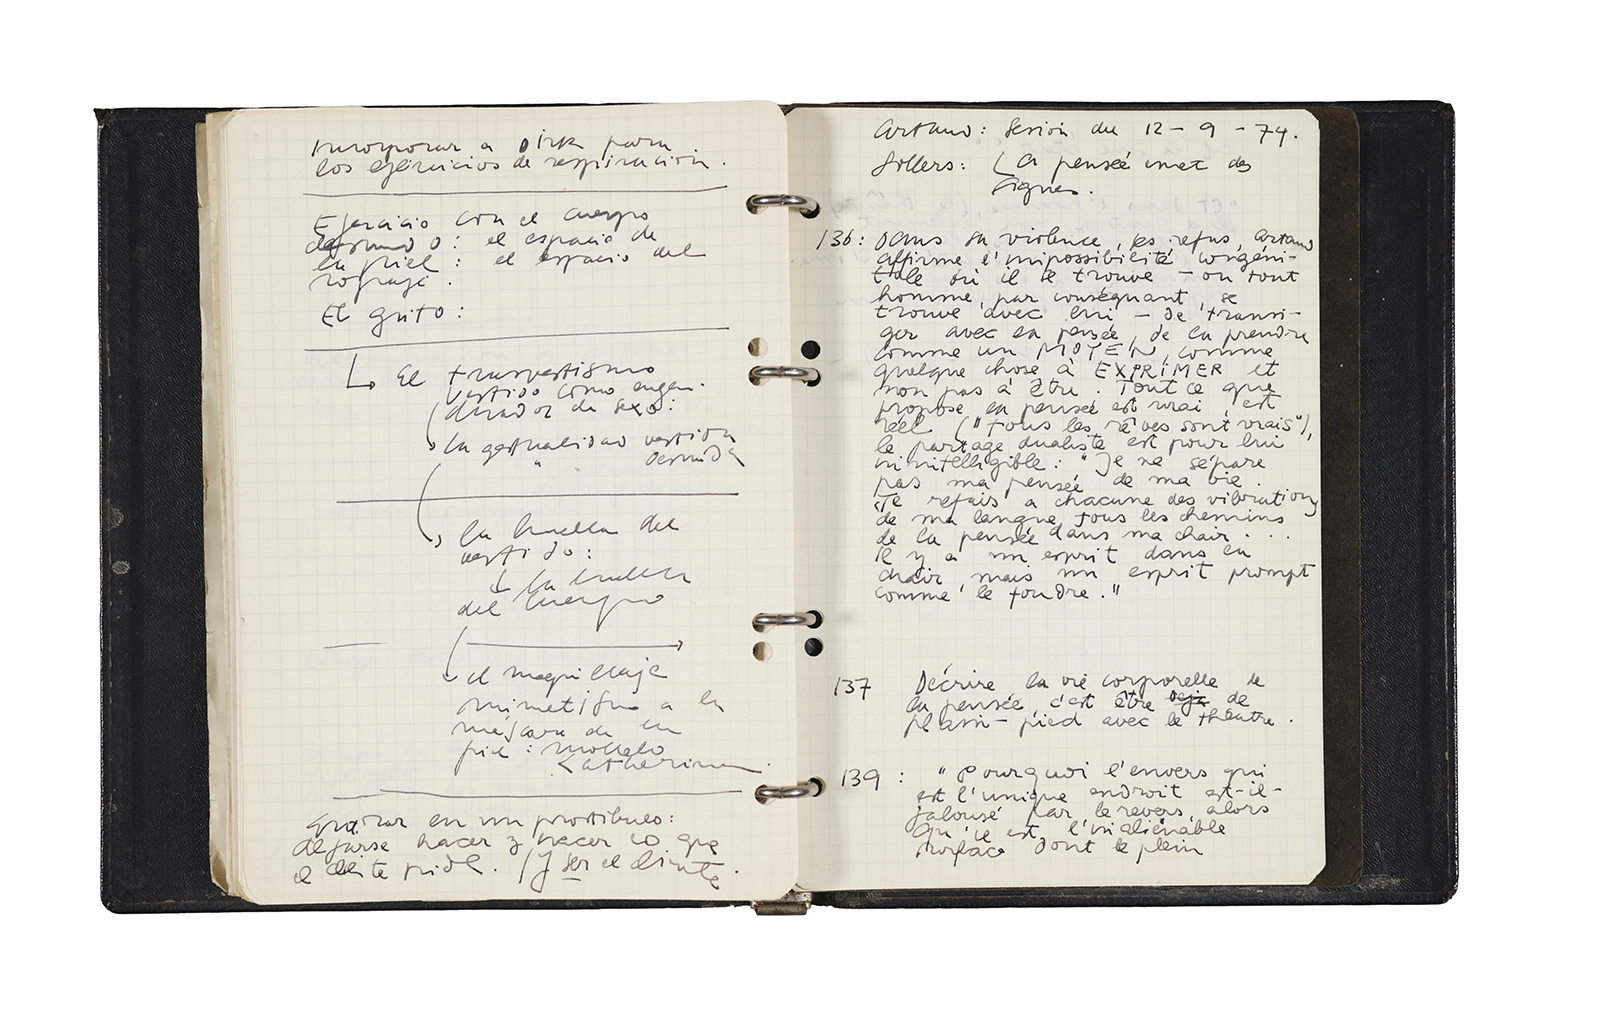 Incorporar a Dirk para
los ejercicios de respiración.
Ejercicio con el cuerpo
desnudo: el espacio de
la piel: el espacio del
ropaje.
El grito:
El trasvestismo
vestido como engen-
drador de sexo:
la gestualidad vestida
" desnuda
la huella del
vestido:
la huella
del cuerpo
el maquillaje
mimetismo a la
máscara de la
piel: modelo
Katherina
Entrar en un prostíbulo:
dejarse hacer y hacer lo que
el cliente pide. (Y ser el cliente.
Artaud: Sesión du 12-9-74.
Sollers: La pensée émet des
signes.
136: Dans sa violence, ses refus, Artaud
affirme l'impossibilité congéni-
tale où il se trouve – où tout
homme, par conséquant, se
trouve avec lui – de transi-
ger avec la pensée, de la prendre
comme un MOYEN, comme
quelque chose à EXPRIMER et
non pas à être. Tout ce que
propose la pensée est vrai, est
réel ("tous les rêves sont vrais"),
le partage dualiste est pour lui
inintelligible: "Je ne sépare
pas ma pensée de ma vie.
Je refais a chacune des vibrations
de ma langue tous les chemins
de la pensée dans ma chair...
Il y a un esprit dans la
chair, mais un esprit prompt
comme le foudre."
137 Décrire la vie corporelle de
la pensée, c'est être deja de
plain-pied avec le théatre.
139: "Pourquoi l'envers qui
est l'unique endroit est-il-
jalousé par le revers, alors
qu'il est l'inaliénable
surface dont le plein